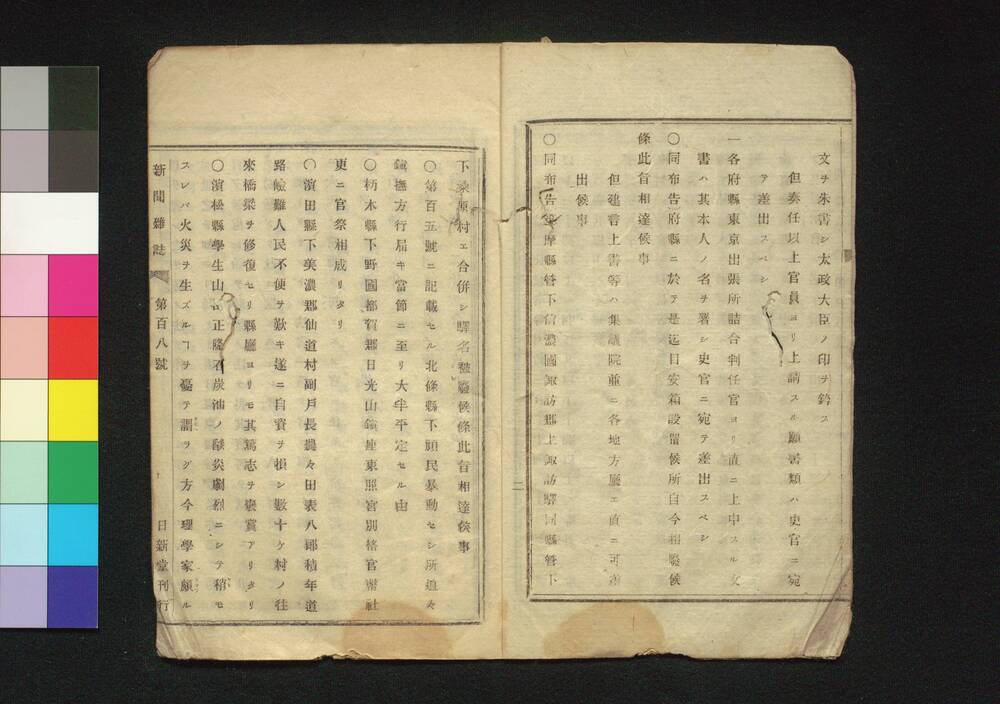 文ヲ朱書シ太政大臣ノ印ヲ鈐ス
但奏任以上官員ヨリ上請スル願書類ハ史官ニ宛
テ差出スベシ
一各府縣東京出張所詰合判任官ヨリ直ニ上申スル文
書ハ其本人ノ名ヲ署シ史官ニ宛テ差出スベシ
〇同布告府縣ニ於テ是迄目安箱設置候所自今相廢候
條此旨相達候事
但建言上書等ハ集議院並ニ各地方廳エ直ニ可差
出候事
〇同布告筑摩縣管下信濃國諏訪郡上諏訪驛同縣管下
二
下桑原村エ合併シ驛名相廢候條此旨相達候事
〇第百五號ニ記載セル北條縣下頑民暴動セシ所追々
鎮撫方行屆キ當節ニ至リ大半平定セル由
〇栃木縣下野國都賀郡日光山鎮座東照宮別格官幣社
更ニ官祭相成リタリ
〇濱田縣下美濃郡仙道村副戸長農々田表八郎積年道
路嶮難人民不便ヲ歎キ遂ニ自資ヲ損シ數十ケ村ノ往
來橋梁ヲ修復セリ縣廳ヨリモ其篤志ヲ褒賞アリタリ
〇濱松縣學生山口正隆石炭油ノ酸炎劇烈ニシテ稍モ
スレバ火災ヲ生ズルヿヲ憂テ謂ラグ方今理學家頗ル
新聞雜誌 第百八號 日新堂刊行